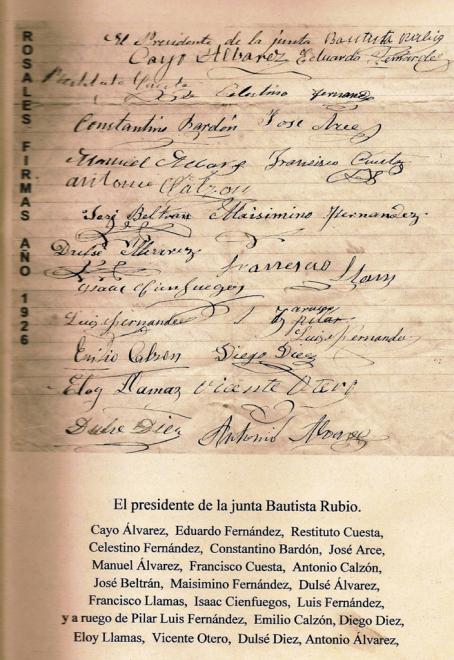 ROSALES FIRMAS AÑO 1926
El Presidente de la junta Bautista Rubio
Cayo Alvarez Eduardo Fernandez
Restituto Cuesta
Celestino Fernandz
Constantino Bardón Jose Arce
Manuel Alvarez Francisco Cuesta
antonio Calzon
José Beltran Maisimino Fernandez
Dulsé Alvarez
Francisco Llamas
Isaac Cienfuegos
Luis Fernandez y a ruego
de pilar
Luis Fernandez
Emilio Calzon Diego Diez
Eloy Llamas Vicente Otero
Dulse Diez Antonio Alvarez
El presidente de la junta Bautista Rubio.
Cayo Álvarez, Eduardo Fernández, Restituto Cuesta,
Celestino Fernández, Constantino Bardón, José Arce,
Manuel Álvarez, Francisco Cuesta, Antonio Calzón,
José Beltrán, Maisimino Fernández, Dulsé Álvarez,
Francisco Llamas, Isaac Cienfuegos, Luis Fernández,
y a ruego de Pilar Luis Fernández, Emilio Calzón, Diego Diez,
Eloy Llamas, Vicente Otero, Dulsé Diez, Antonio Álvarez,